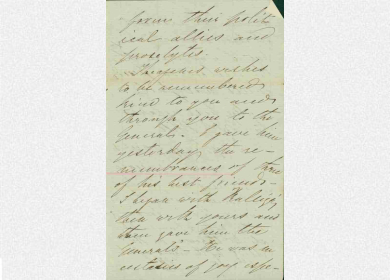 from their polit
ical allies and
proselytes.
wishes
to be remembered
kind to you and
through you to the
General. I gave him
yesterday the re-
membrances of three
of his best friends -
I began with Raleigh,
then with yours and
then gave him the
Generals - He was in
ecstasies of joys espe-